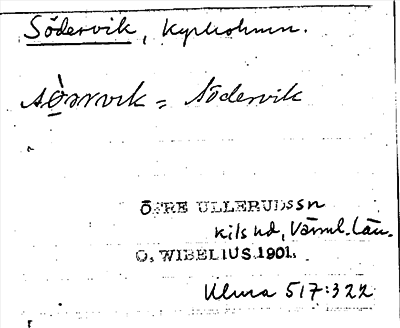 Södervik, Kyrkohemm.
= Södervik
ÖFRE ULLERUDSSN
Kils hd, Värml. län.
O. WIBELIUS 1901.
Ulma 517:322